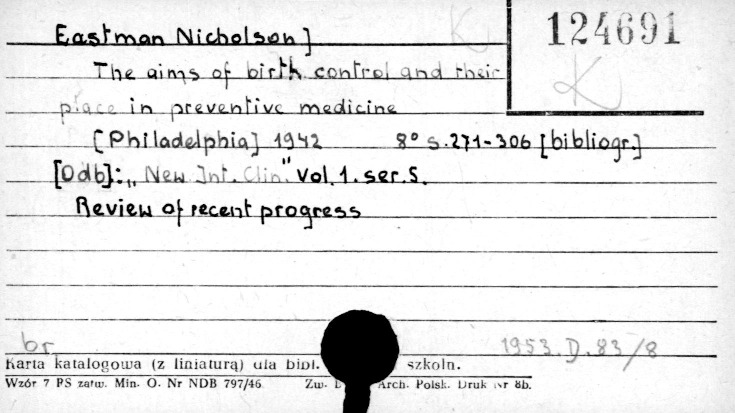 Eastman Nicholson]
124691
K
The aims of birth control and their
place in preventive medicine
[Philadelphia] 1942 8° s.271-306 [bibliogr.]
[Odb]: „New Int. Clin." vol.1.ser.5.
Review of recent progress
br
1953.D.83/8
Karta katalogowa (z liniaturą) dla bibl. szkoln.
Wzór 7 PS zatw. Min. O. Nr NDB 797/46 Zw. Arch. Polsk. Druk Nr 8b.